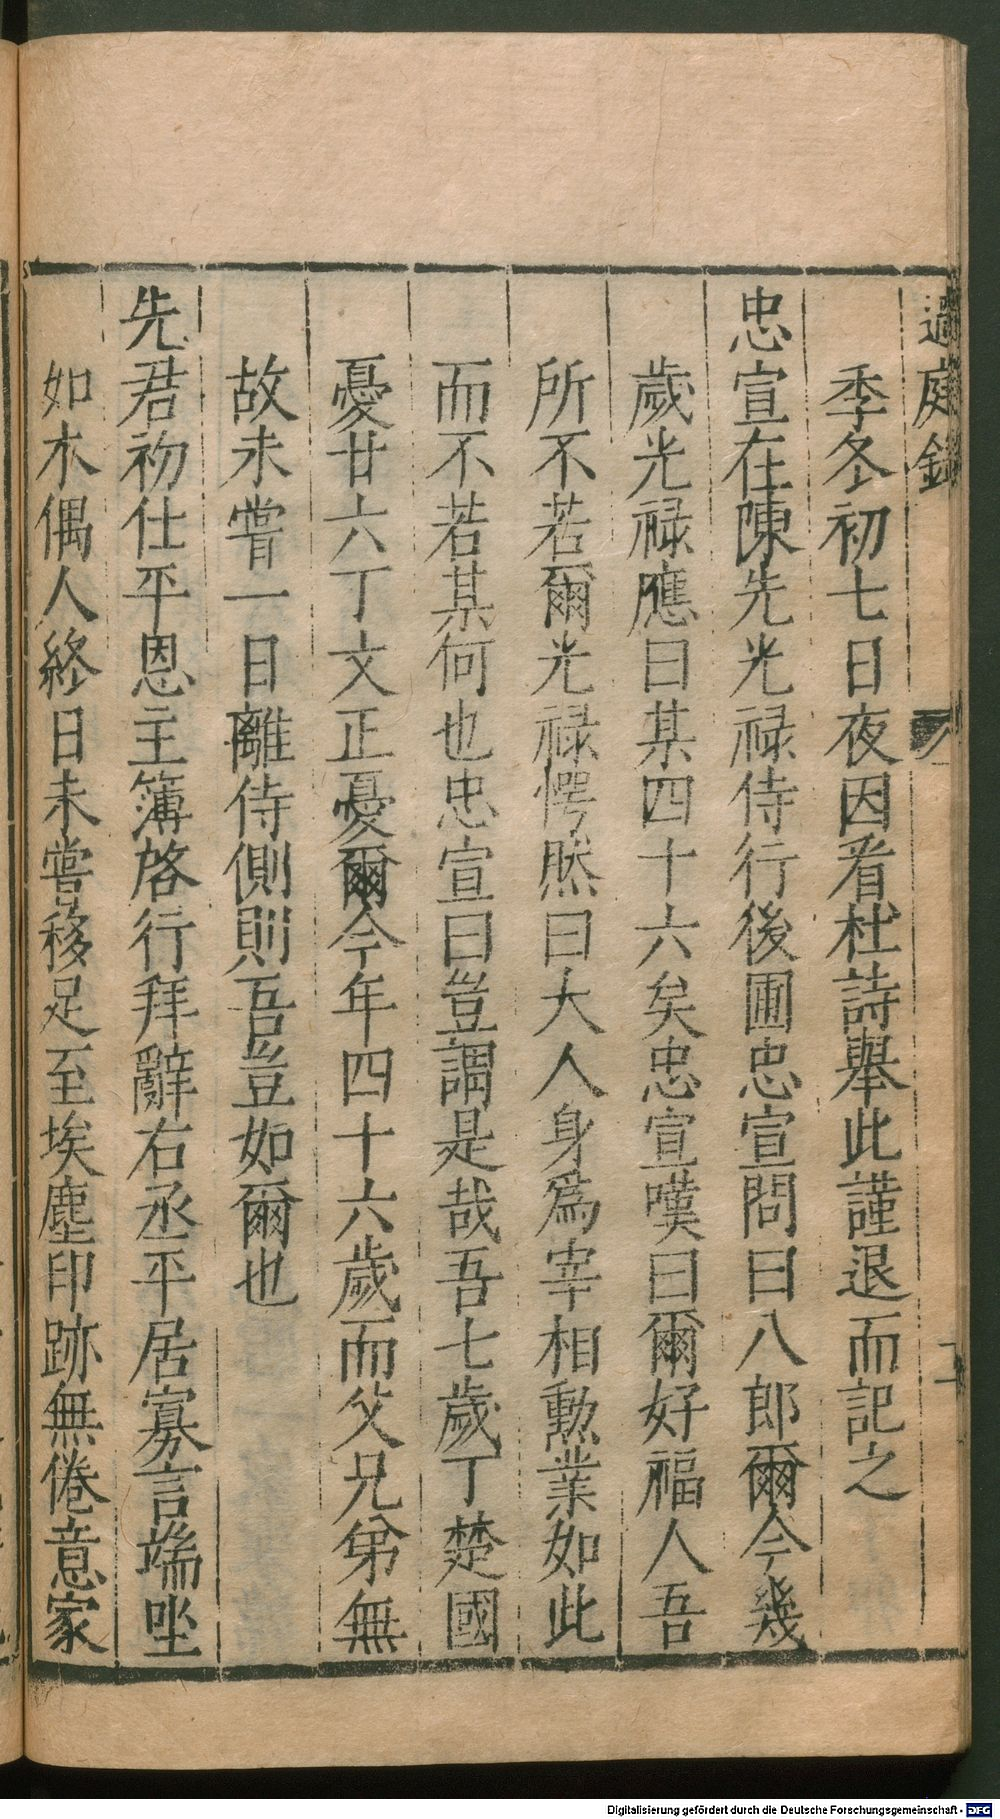 過庭錄
季冬初七日夜因看杜詩舉此謹退而記之
忠宣在陳先光祿侍行後圃忠宣問曰八郎爾今幾
歲光祿應曰某四十六矣忠宣嘆曰爾好福人吾
所不若爾光祿愕然曰大人身爲宰相勳業如此
而不若某何也忠宣曰豈謂是哉吾七歲丁楚國
憂廿六丁文正憂爾今年四十六歲而父兄弟無
故未嘗一日離侍側則吾豈如爾也
先君初仕平恩主簿啓行拜辭右丞平居寡言端坐
如木偶人終日未嘗移足至埃塵印跡無倦意家
Digitalisierung gefördert durch die Deutsche Forschungsgemeinschaft - DFG